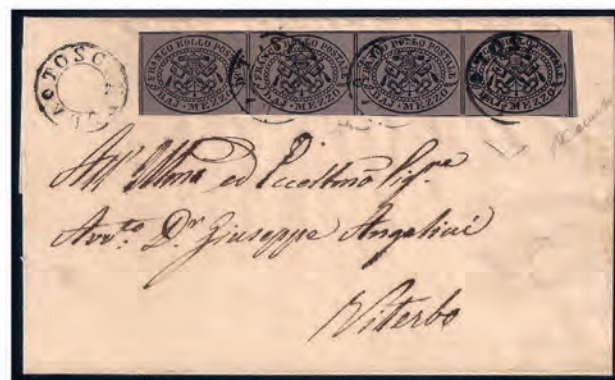 FRANCO BOLLO POSTALE BAJ·MEZZO FRANCO BOLLO POSTALE BAJ·MEZZO FRANCO BOLLO POSTALE BAJ·MEZZO FRANCO BOLLO POSTALE BAJ·MEZZO
TOSCANEL
All' Illmo ed Eccellmo Sig.re
Avv.to D.r Giuseppe Angelini
Viterbo